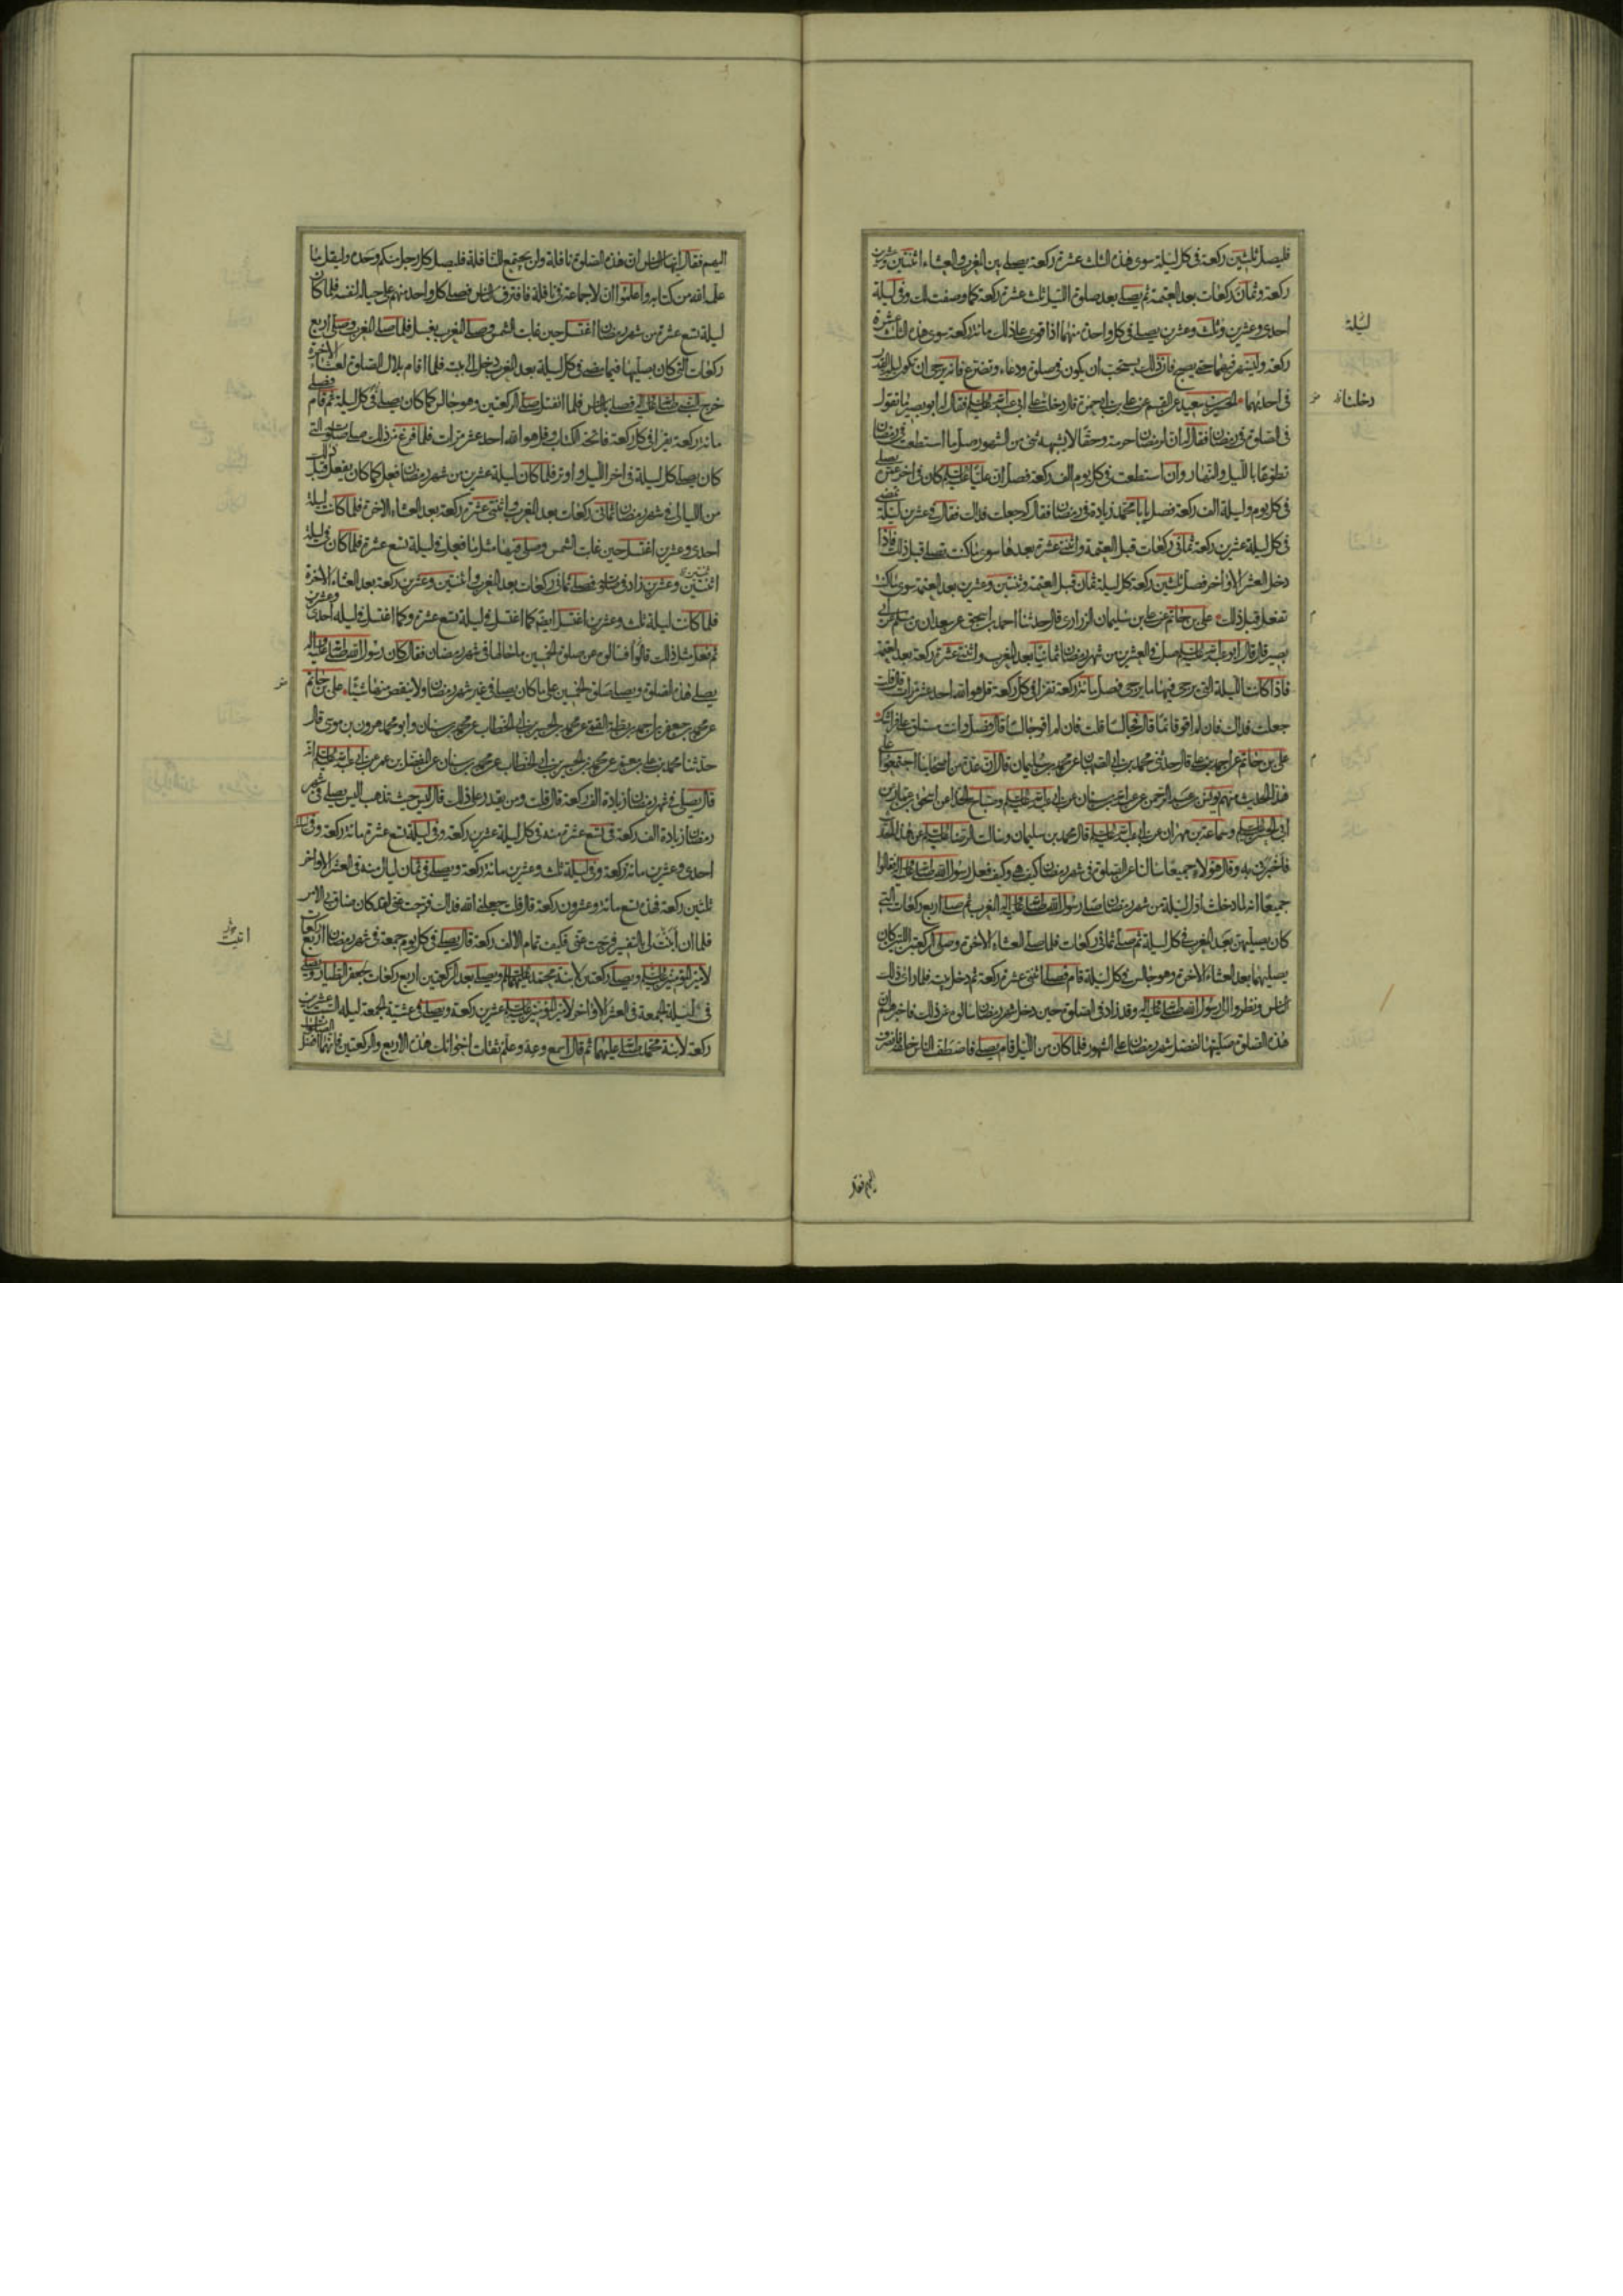 فليصل ثلثين ركعة فى كل ليلة سوى هذه الثلث عشرة ركعة يصلى بين المغرب والعشاء اثنتين وعشرين
ركعة وثمان ركعات بعد العتمة ثم يصلى بعد صلوة الليل ثلث عشرة ركعة كما وصفت لك وفى ليلة
احدى وعشرين وثلث وعشرين يصلى فى كل واحدة منهما اذا قوى على ذلك مائة ركعة سوى هذه الثلث عشرة
ركعة وليسهر فيهما حتى يصبح فان ذلك يستحب ان يكون فى صلوة ودعاء وتضرع فانه يرجى ان تكون ليلة القدر
فى احديهما الحسين بن سعيد عن القسم عن على بن ابى حمزة قال دخلت على ابى عبد الله عليه السلم فقال له ابو بصير ما تقول
فى الصلوة فى رمضان فقال له ان لرمضان حرمة وحقا لا يشبهه شئ من الشهور صل ما استطعت فى رمضان
تطوعا بالليل والنهار وان استطعت فى كل يوم الف ركعة فصل ان عليا عليه السلم كان فى اخر عمره يصلى
فى كل يوم وليلة الف ركعة فصل يا با محمد زيادة فى رمضان فقال كم جعلت فداك فقال فى عشرين ليلة تمضى
فى كل ليلة عشرين ركعة ثمانى ركعات قبل العتمة واثنتى عشرة بعدها سوى ما كنت تصلى قبل ذلك فاذا
دخل العشر الاواخر فصل ثلثين ركعة كل ليلة ثمان قبل العتمة وثنتين وعشرين بعد العتمة سوى ما كنت
تفعل قبل ذلك على بن حاتم عن على بن سليمان الزرارى قال حدثنا احمد بن اسحق عن سعدان بن مسلم عن ابى
بصير قال قال ابو عبد الله عليه السلم صل فى العشرين من شهر رمضان ثمانيا بعد المغرب واثنتى عشرة ركعة بعد العتمة
فاذا كانت الليلة التى يرجى فيها ما يرجى فصل مائة ركعة تقرا فى كل ركعة قل هو الله احد عشر مرات قال قلت
جعلت فداك فان لم اقو قائما قال فجالسا قلت فان لم اقو جالسا قال فصل وانت مستلق على فراشك
على بن حاتم عن احمد بن على قال حدثنى محمد بن ابى الصهبان عن محمد بن سليمان قال ان عدة من اصحابنا اجتمعوا على
هذا الحديث منهم يونس بن عبد الرحمن عن عبد الله بن سنان عن ابى عبد الله عليه السلم وصباح الحذا عن اسحق بن عمار عن
ابى الحسن عليه السلم وسماعة بن مهران عن ابى عبد الله عليه السلم قال محمد بن سليمان وسالت الرضا عليه السلم عن هذا الحديث
فاخبرنى به وقال هؤلاء جميعا سالنا عن الصلوة فى شهر رمضان كيف هى وكيف فعل رسول الله صلى الله عليه واله فقالوا
جميعا انه لما دخلت اول ليلة من شهر رمضان صلى رسول الله صلى الله عليه واله المغرب ثم صلى اربع ركعات التى
كان يصليهن بعد المغرب فى كل ليلة ثم صلى ثمانى ركعات فلما صلى العشاء الاخرة وصلى الركعتين اللتين كان
يصليهما بعد العشاء الاخرة وهو جالس فى كل ليلة قام فصلى اثنتى عشرة ركعة ثم دخل بيته فلما راى ذلك
الناس ونظروا الى رسول الله صلى الله عليه واله وقد زاد فى الصلوة حين دخل شهر رمضان سالوه عن ذلك فاخبرهم ان
هذه الصلوة صليتها لفضل شهر رمضان على الشهور فلما كان من الليل قام يصلى فاصطف الناس خلفه فانصرف
ليلة
دخلنا
اليهم فقال
اليهم فقال ايها الناس ان هذه الصلوة نافلة ولن يجتمع للنافلة فليصل كل رجل منكم وحده وليقل ما
علمه الله من كتابه واعلموا ان لا جماعة فى نافلة فافترق الناس فصلى كل واحد منهم على حياله لنفسه فلما كان
ليلة تسع عشرة من شهر رمضان اغتسل حين غابت الشمس وصلى المغرب بغسل فلما صلى المغرب وصلى اربع
ركعات التى كان يصليها فيما مضى فى كل ليلة بعد المغرب دخل الى بيته فلما اقام بلال الصلوة لعشاء الاخرة
خرج النبى صلى الله عليه واله فصلى بالناس فلما انفتل صلى الركعتين وهو جالس كما كان يصلى فى كل ليلة ثم قام فصلى
مائة ركعة يقرا فى كل ركعة فاتحة الكتاب وقل هو الله احد عشر مرات فلما فرغ من ذلك صلى صلوته التى
كان يصلى كل ليلة فى اخر الليل واوتر فلما كان ليلة عشرين من شهر رمضان فعل كما كان يفعل قبل ذلك
من الليالى فى شهر رمضان ثمانى ركعات بعد المغرب واثنتى عشرة ركعة بعد العشاء الاخرة فلما كانت ليلة
احدى وعشرين اغتسل حين غابت الشمس وصلى فيها مثل ما فعل فى ليلة تسع عشرة فلما كان فى ليلة
اثنتين وعشرين زاد فى صلوته فصلى ثمانى ركعات بعد المغرب واثنتين وعشرين ركعة بعد العشاء الاخرة
فلما كانت ليلة ثلث وعشرين اغتسل ايضا كما اغتسل فى ليلة تسع عشرة وكما اغتسل فى ليلة احدى وعشرين
ثم فعل مثل ذلك قالوا فسالوه عن صلوة الخمسين ما حالها فى شهر رمضان فقال كان رسول الله صلى الله عليه واله
يصلى هذه الصلوة ويصلى صلوة الخمسين على ما كان يصلى فى غير شهر رمضان ولا ينقص منها شيئا على بن حاتم
عن محمد بن جعفر بن احمد بن بطة القمى عن محمد بن الحسن عن ابى الخطاب عن محمد بن سنان وابو محمد هرون بن موسى قال
حدثنا محمد بن على بن معمر عن محمد بن الحسين بن ابى الخطاب عن محمد بن سنان عن المفضل بن عمر عن ابى عبد الله عليه السلم انه
قال يصلى فى شهر رمضان زيادة الف ركعة قال قلت ومن يقدر على ذلك قال ليس حيث تذهب اليس يصلى فى شهر
رمضان زيادة الف ركعة فى تسع عشرة منه فى كل ليلة عشرين ركعة وفى ليلة تسع عشرة مائة ركعة وفى ليلة
احدى وعشرين مائة ركعة وفى ليلة ثلث وعشرين مائة ركعة ويصلى فى ثمان ليال منه فى العشر الاواخر
ثلثين ركعة فهذه تسع مائة وعشرون ركعة قال قلت جعلنى الله فداك فرجت عنى لقد كان ضاق بى الامر
فلما ان ابنت لى بالتفسير فرجت عنى فكيف تمام الالف ركعة قال يصلى فى كل يوم جمعة فى شهر رمضان اربع ركعات
لامير المومنين عليه السلم ويصلى ركعتين لابنة محمد عليهما السلم ويصلى بعد الركعتين اربع ركعات لجعفر الطيار ويصلى
فى ليلة الجمعة فى العشر الاواخر لامير المومنين عليه السلم عشرين ركعة ويصلى فى عشية الجمعة ليلة السبت عشرين
ركعة لابنة محمد صلى الله عليهما ثم قال اسمع وعه وعلم ثقات اخوانك هذه الاربع والركعتين فانهما افضل الصلوات